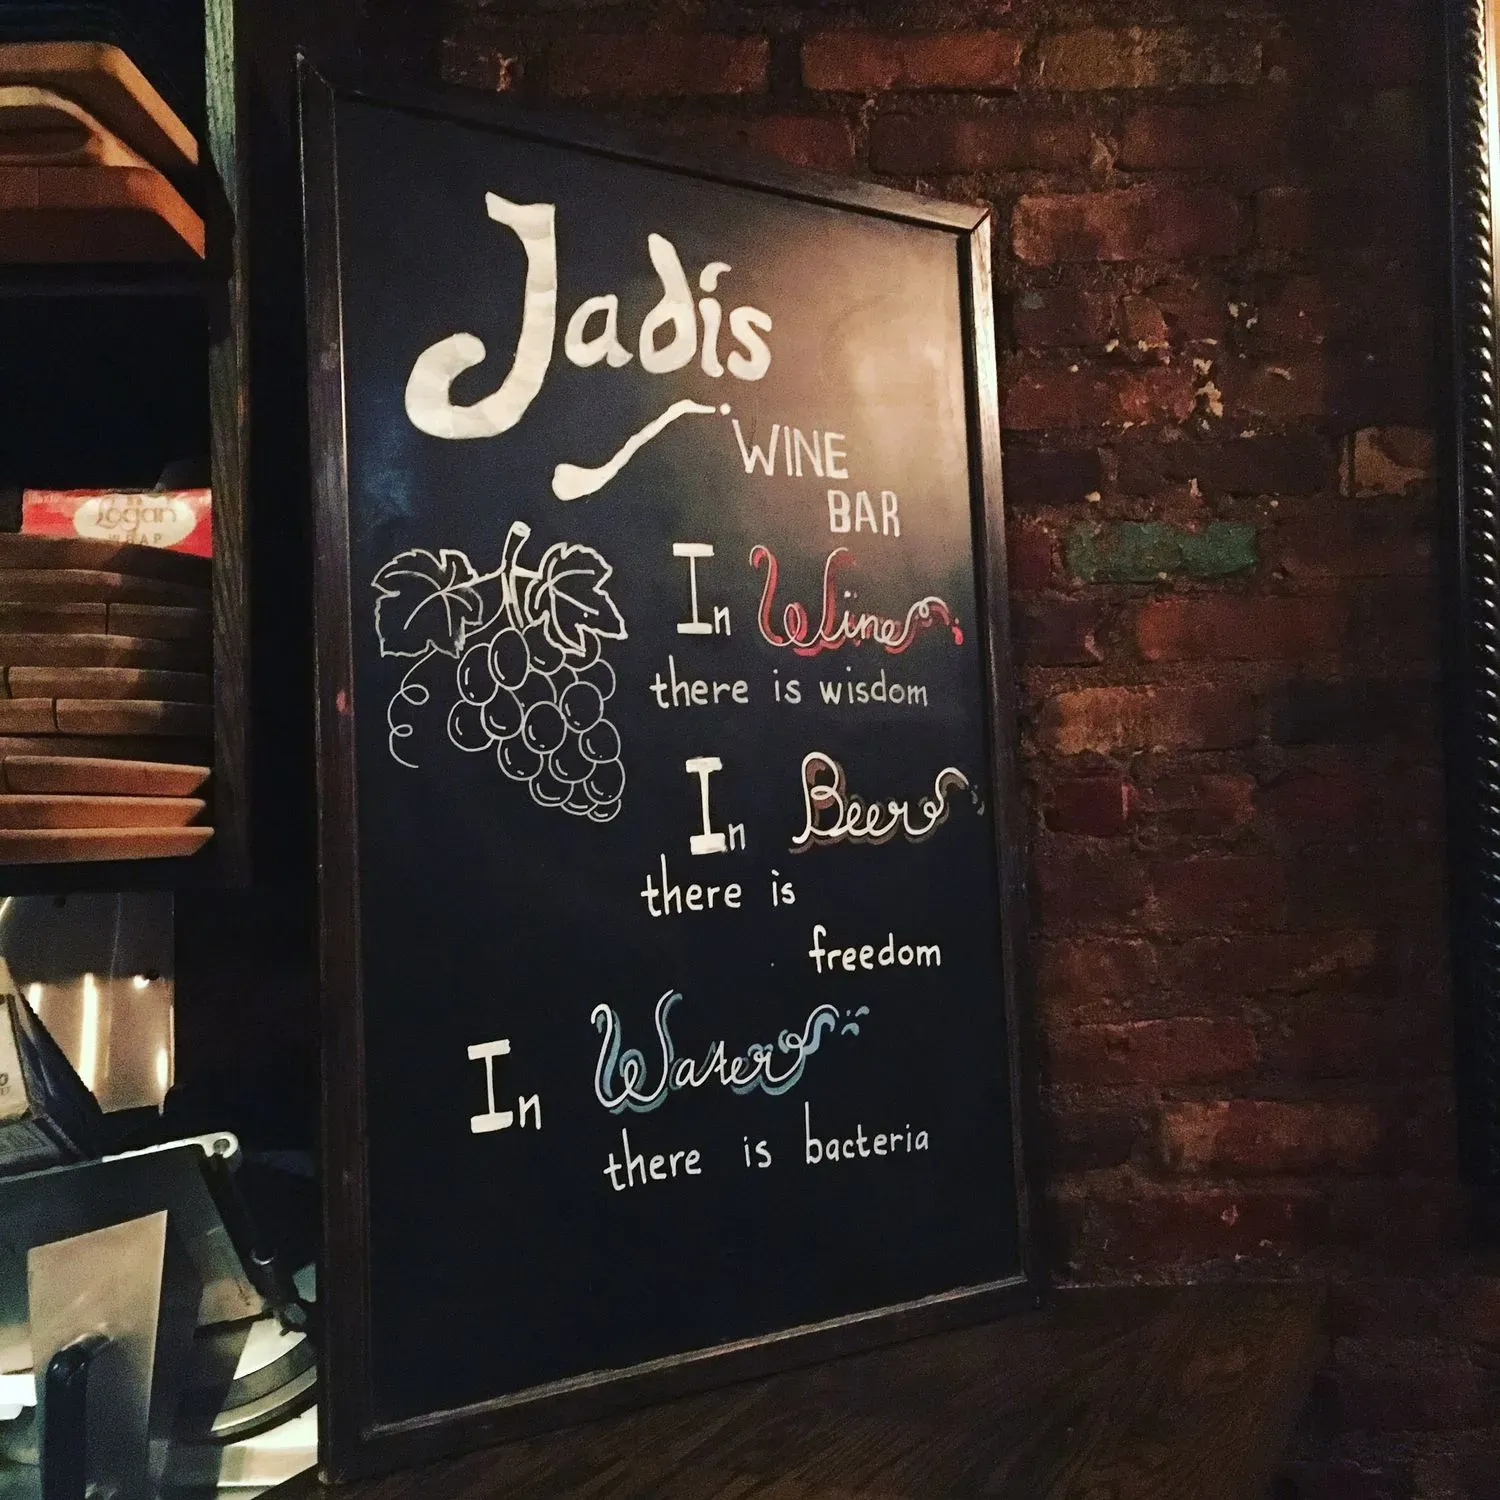 Jadis
WINE
BAR
In Wine
there is wisdom
In Beer
there is
freedom
In Water
there is bacteria
Logan
WRAP